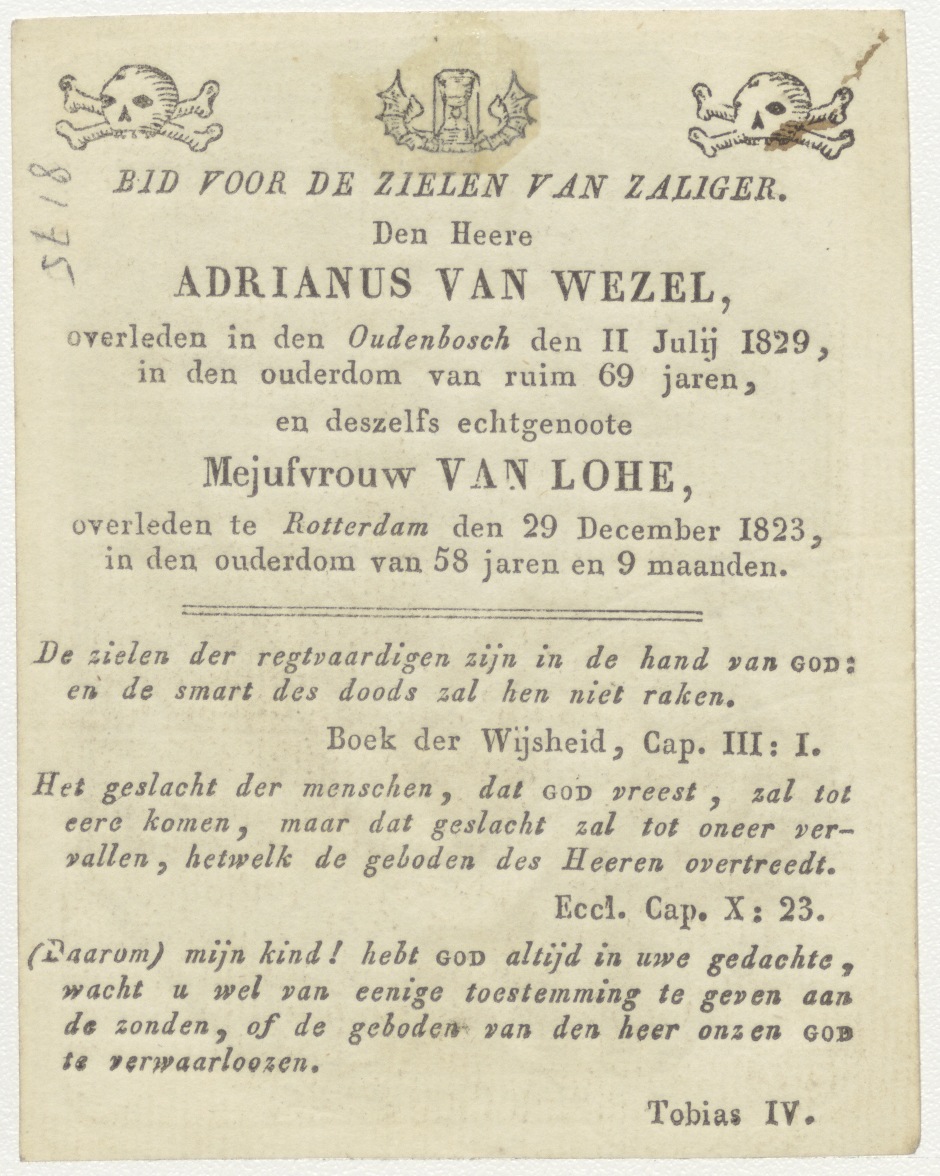 BID VOOR DE ZIELEN VAN ZALIGER.
Den Heere
ADRIANUS VAN WEZEL,
overleden in den Oudenbosch den II Julij 1829,
in den ouderdom van ruim 69 jaren,
en deszelfs echtgenoote
Mejufvrouw VAN LOHE,
overleden te Rotterdam den 29 December 1823,
in den ouderdom van 58 jaren en 9 maanden.
De zielen der regtvaardigen zijn in de hand van GOD:
en de smart des doods zal hen niet raken.
Boek der Wijsheid, Cap. III: I.
Het geslacht der menschen, dat GOD vreest, zal tot
eere komen, maar dat geslacht zal tot oneer ver-
vallen, hetwelk de geboden des Heeren overtreedt.
Eccl. Cap. X: 23.
(Daarom) mijn kind! hebt GOD altijd in uwe gedachte,
wacht u wel van eenige toestemming te geven aan
de zonden, of de geboden van den heer onzen GOD
te verwaarloozen.
Tobias IV.